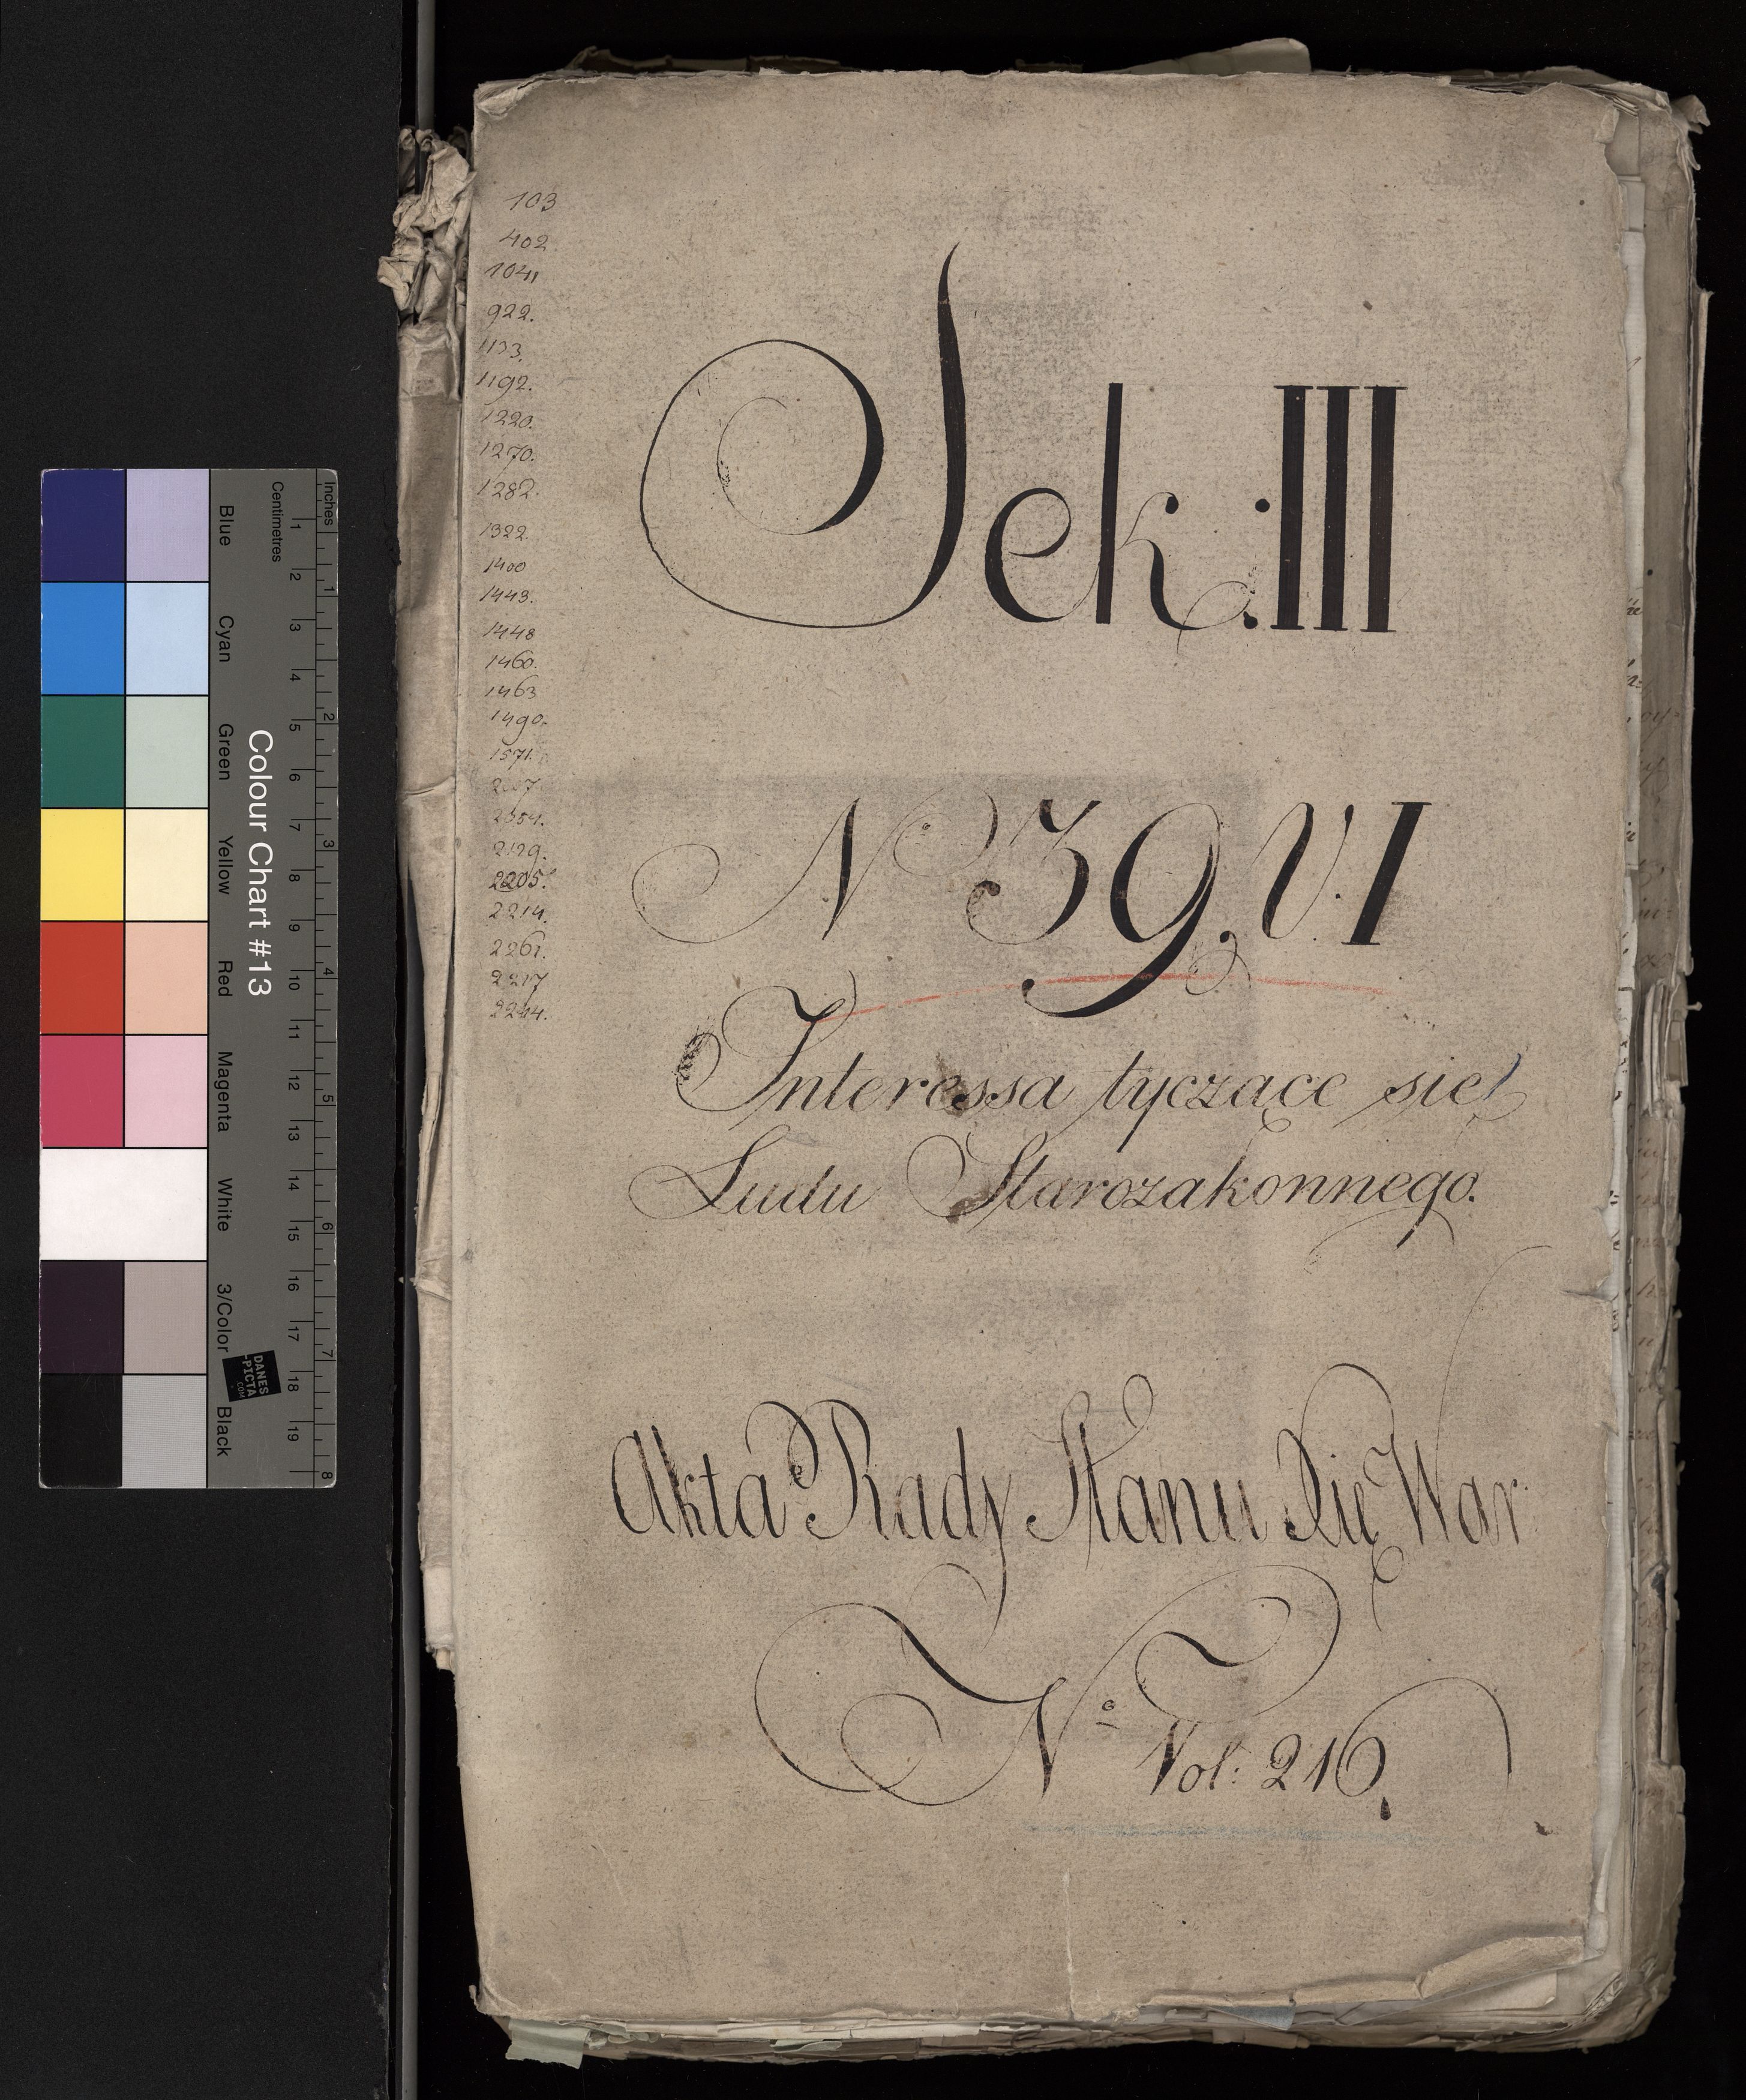 103
402
1041
922.
1133.
1192.
1220.
1270.
1282.
1322.
1400
1443.
1448
1460.
1463
1490.
1571.
2054.
2129.
2205.
2214.
2261.
2217
2244.
Sek:III
No 39, V.I
Interessa tyczące się
Ludu Starozakonnego.
Akta Rady Stanu Xię War:
No Vol: 216,
Colour Chart #13
Inches
Centimetres
Blue
Cyan
Green
Yellow
Red
Magenta
White
3/Color
Black
1 2 3 4 5 6 7 8 9 10 11 12 13 14 15 16 17 18 19
1 2 3 4 5 6 7 8
DANES
-PICTA
.COM